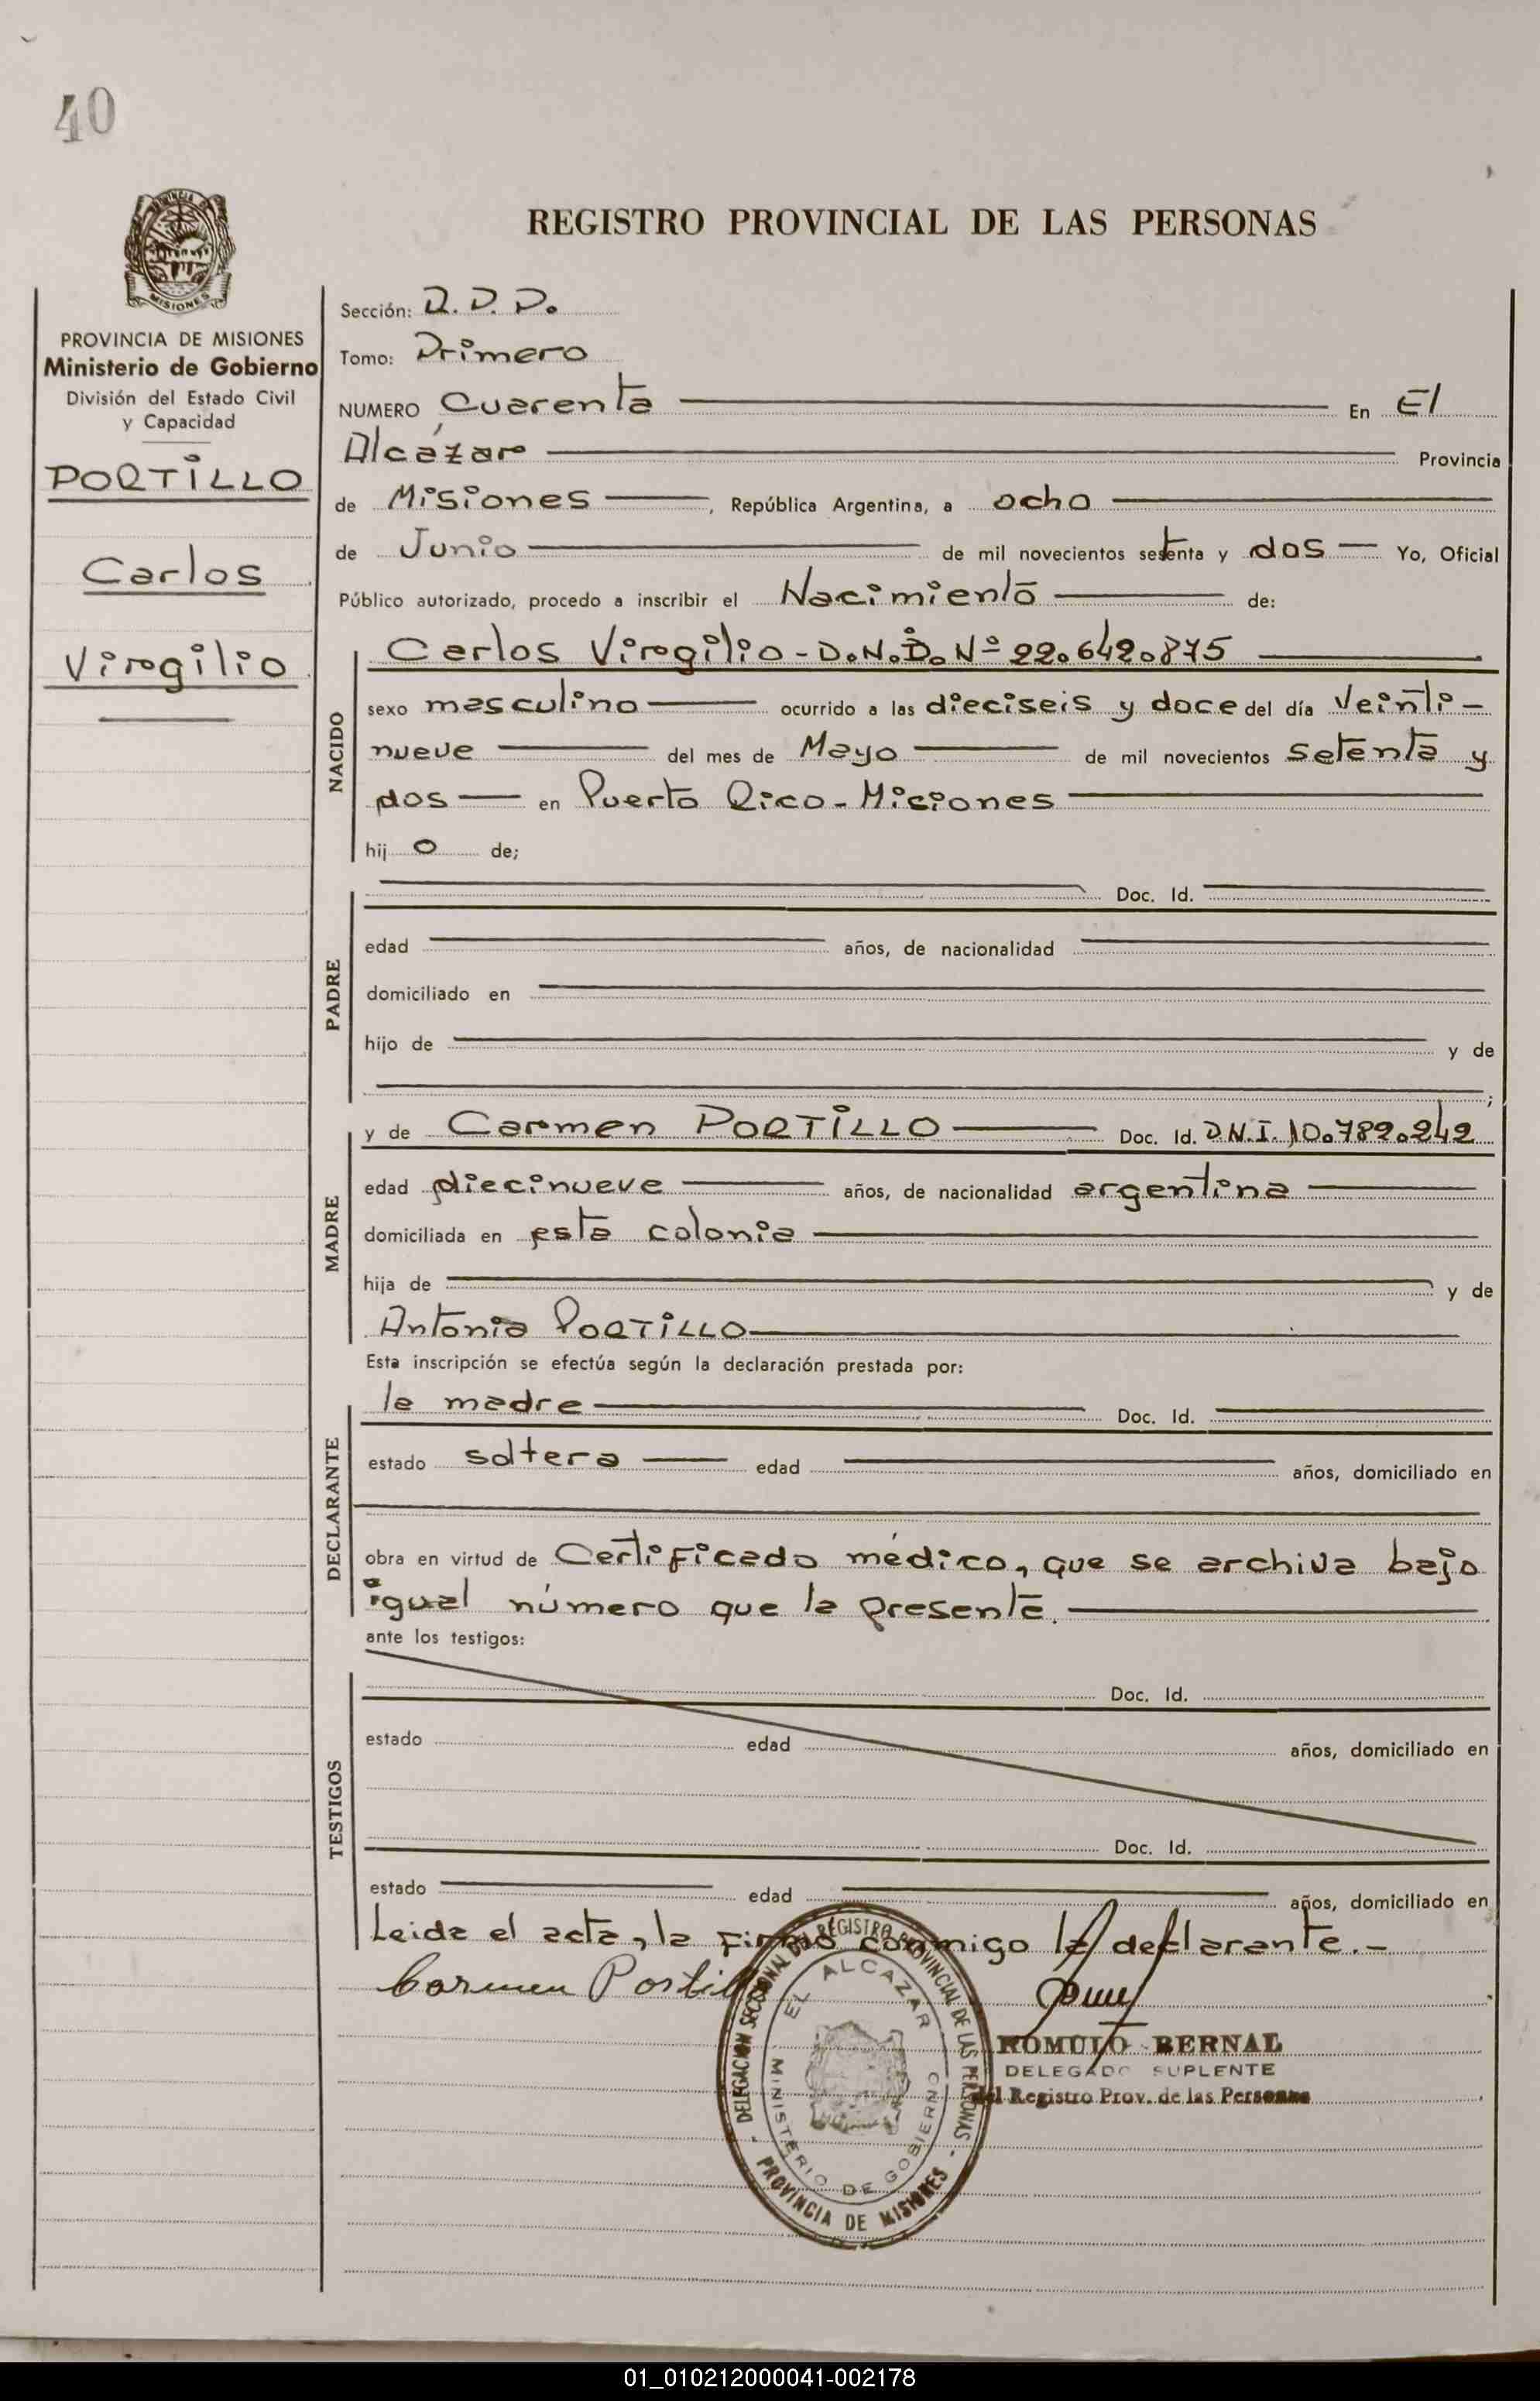 40
REGISTRO PROVINCIAL DE LAS PERSONAS
PROVINCIA DE MISIONES
Ministerio de Gobierno
División del Estado Civil
y Capacidad
PORTiLLO
Carlos
Virgilio
Sección: R.P.P.
Tomo: Primero
NUMERO Cuarenta En El
Alcázar Provincia
de Misiones, República Argentina, a ocho
de Junio de mil novecientos setenta y dos Yo, Oficial
Público autorizado, procedo a inscribir el Nacimiento de:
NACIDO
Carlos Virgilio - D.N.I. Nº 22.642.875
sexo masculino ocurrido a las dieciseis y doce del día Veinti-
nueve del mes de Mayo de mil novecientos setenta y
dos en Puerto Rico - Misiones
hij o de;
PADRE
Doc. Id.
edad años, de nacionalidad
domiciliado en
hijo de y de
;
MADRE
y de Carmen PORTiLLO Doc. Id. D.N.I. 10.782.242
edad diecinueve años, de nacionalidad argentina
domiciliada en esta colonia
hija de y de
Antonia PORTiLLO
Esta inscripción se efectúa según la declaración prestada por:
DECLARANTE
la madre Doc. Id.
estado soltera edad años, domiciliado en
obra en virtud de Certificado médico, que se archiva bajo
igual número que la presente.
ante los testigos:
TESTIGOS
Doc. Id.
estado edad años, domiciliado en
Doc. Id.
estado edad años, domiciliado en
Leida el acta, la firmó conmigo la declarante.-
Carmen Portillo
DELEGACION SECCIONAL DEL REGISTRO PROVINCIAL DE LAS PERSONAS
EL ALCAZAR
MINISTERIO DE GOBIERNO
- PROVINCIA DE MISIONES -
ROMULO BERNAL
DELEGADO SUPLENTE
del Registro Prov. de las Personas
01_010212000041-002178